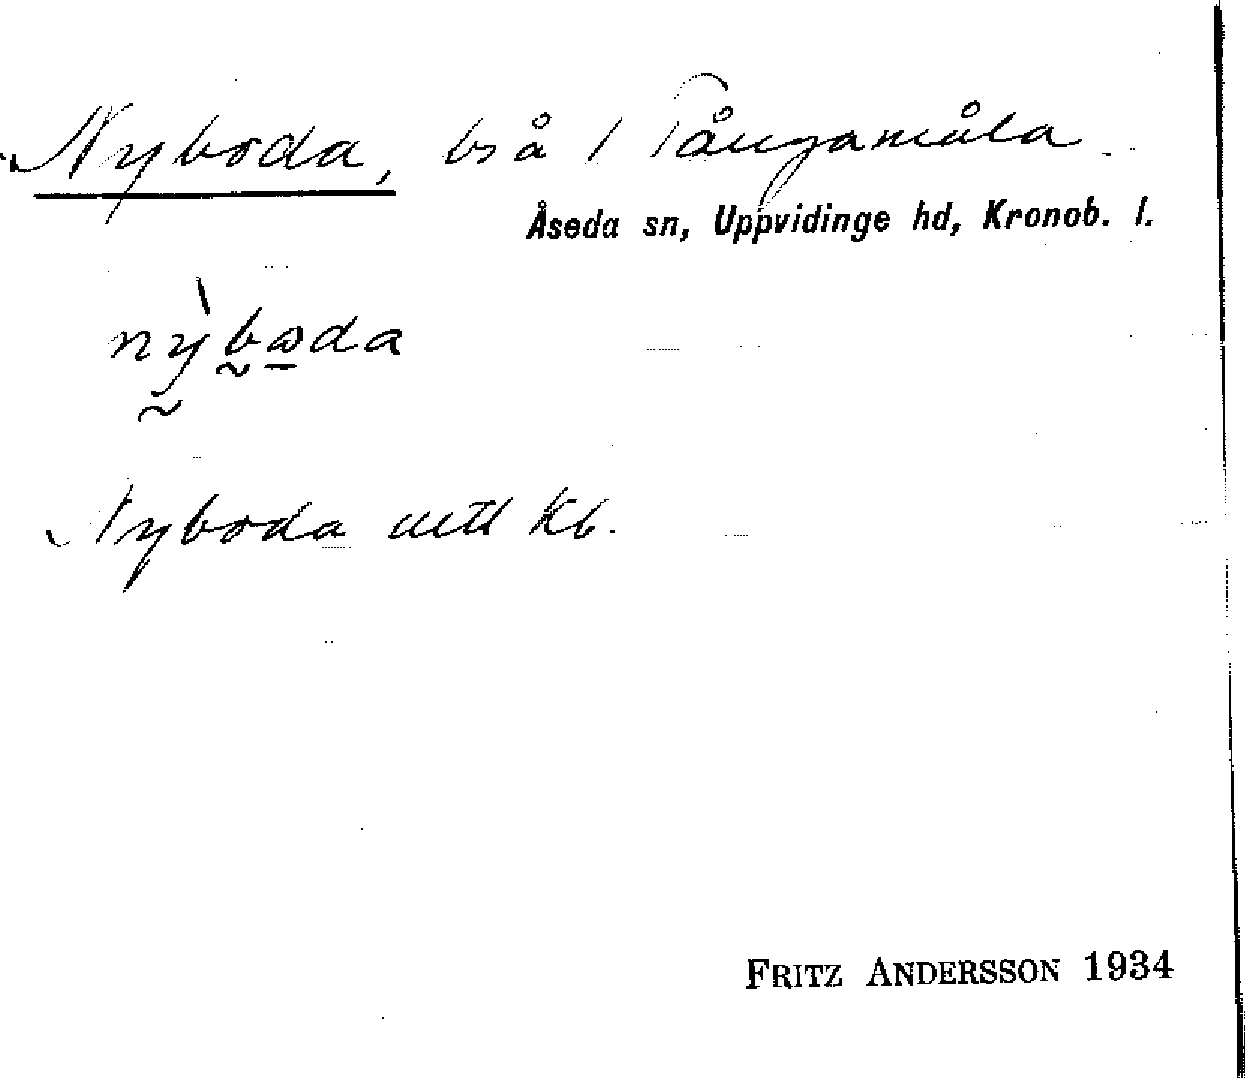 Nyboda, bs å / Tångamåla
Åseda sn, Uppvidinge hd, Kronob. l.
nỳbωda
Nyboda uttl Kb.
FRITZ ANDERSSON 1934